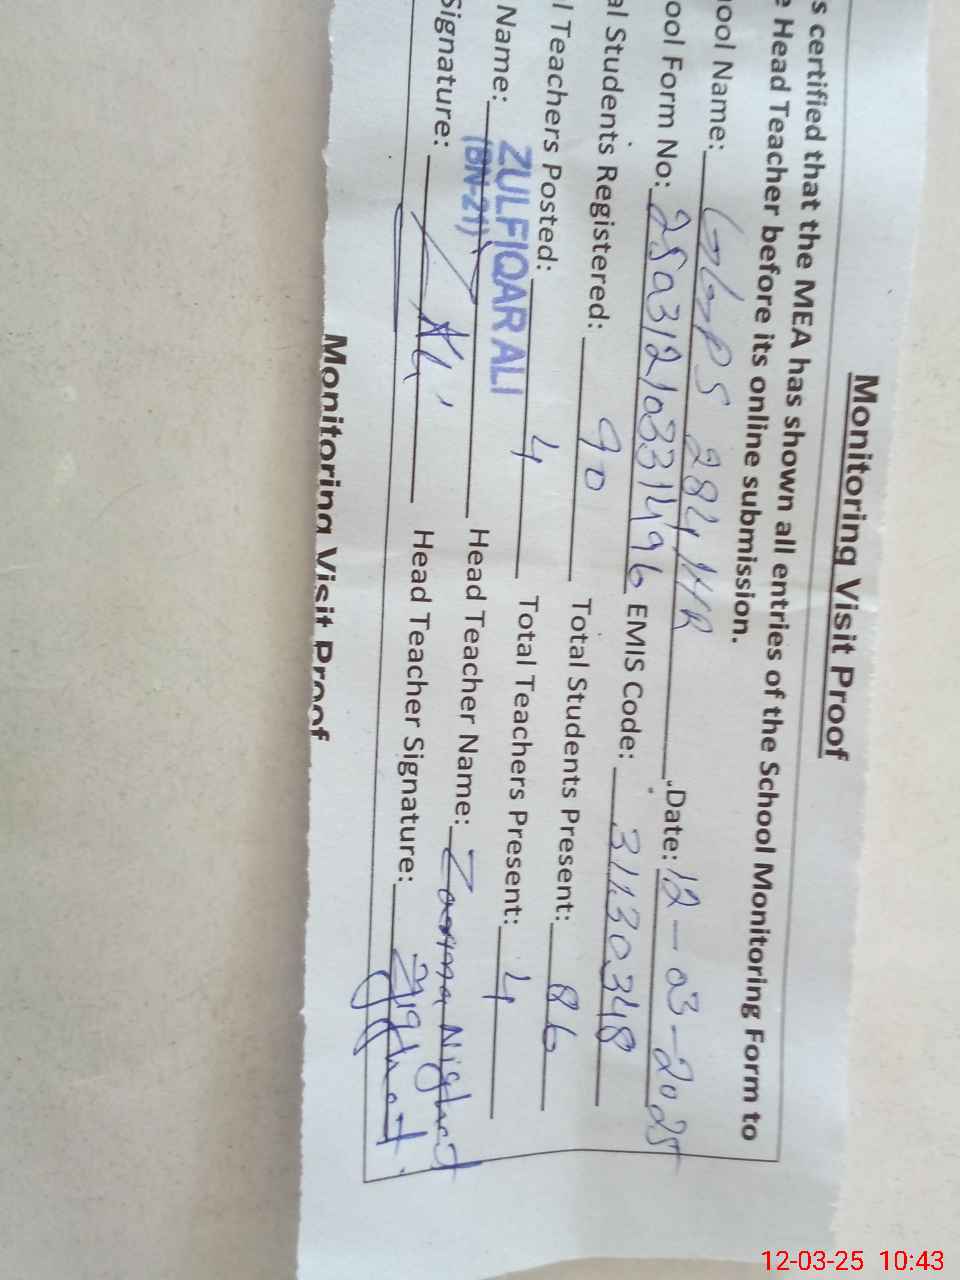 Monitoring Visit Proof
s certified that the MEA has shown all entries of the School Monitoring Form to
e Head Teacher before its online submission.
ool Name: GGPS 284 HR Date: 12-03-2025
ool Form No: 25031210331496 EMIS Code: 31130348
al Students Registered: 90 Total Students Present: 86
l Teachers Posted: 4 Total Teachers Present: 4
Name: ZULFIQAR ALI (BN-21) Head Teacher Name: Nighat
Signature: Ali Head Teacher Signature: Nighat
Monitoring Visit Proof
12-03-25 10:43